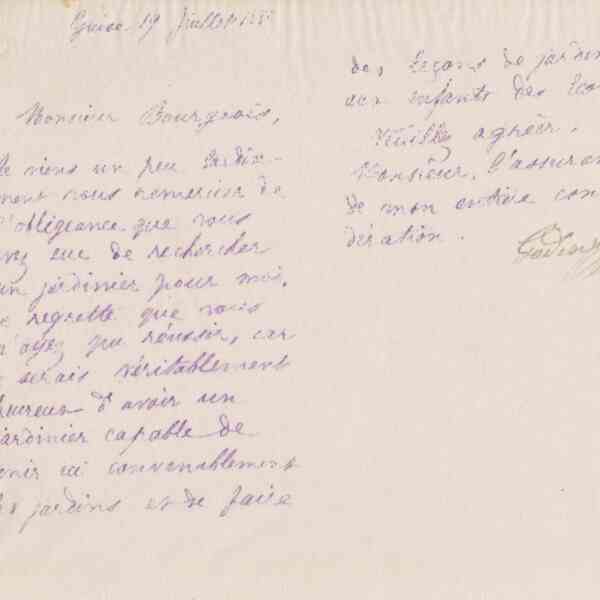 Guise 19 Juillet
Monsieur Bourgeois,
viens un peu tardive-
ment vous remercier de
l'obligeance que vous
avez eue de rechercher
un jardinier pour moi.
regrette que vous
n'ayez pu réussir, car
serais véritablement
heureux d'avoir un
jardinier capable de
tenir ici convenablement
les jardins et de faire
des leçons de jardin
aux enfants des Eco
Veuillez agréer,
Monsieur, l'assuran
de mon entière con
dération.